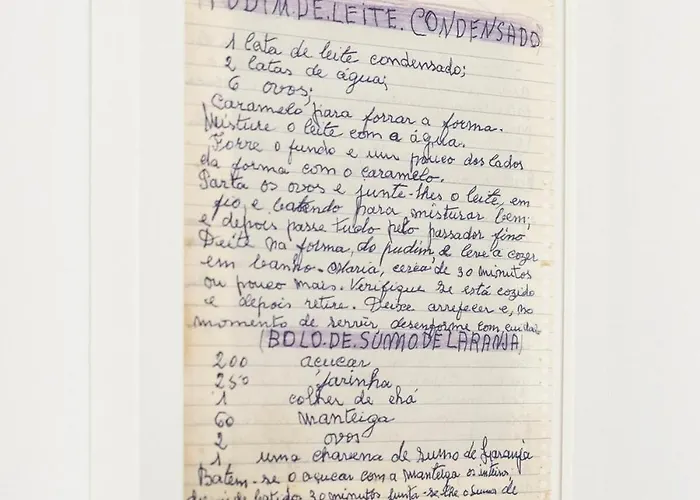 PUDIM.DE.LEITE.CONDENSADO
1 lata de leite condensado;
2 latas de água;
6 ovos;
Caramelo para forrar a forma.
Misture o leite com a água.
Forre o fundo e um pouco dos lados
da forma com o caramelo.
Parta os ovos e junte-lhes o leite, em
fio e batendo para misturar bem;
e depois passe tudo pelo passador fino
Deite na forma, do pudim, e leve a cozer
em banho-Maria, cerca de 30 minutos
ou pouco mais. Verifique se está cozido
e depois retire. Deixe arrefecer e, no
momento de servir, desenforme com
(BOLO.DE.SUMO.DE LARANJA)
200 açucar
250 farinha
1 colher de chá
60 manteiga
2 ovos
1 uma chavena de sumo de laranja
Batem-se o açucar com a manteiga os
30 minutos junta-se lhe o sumo de